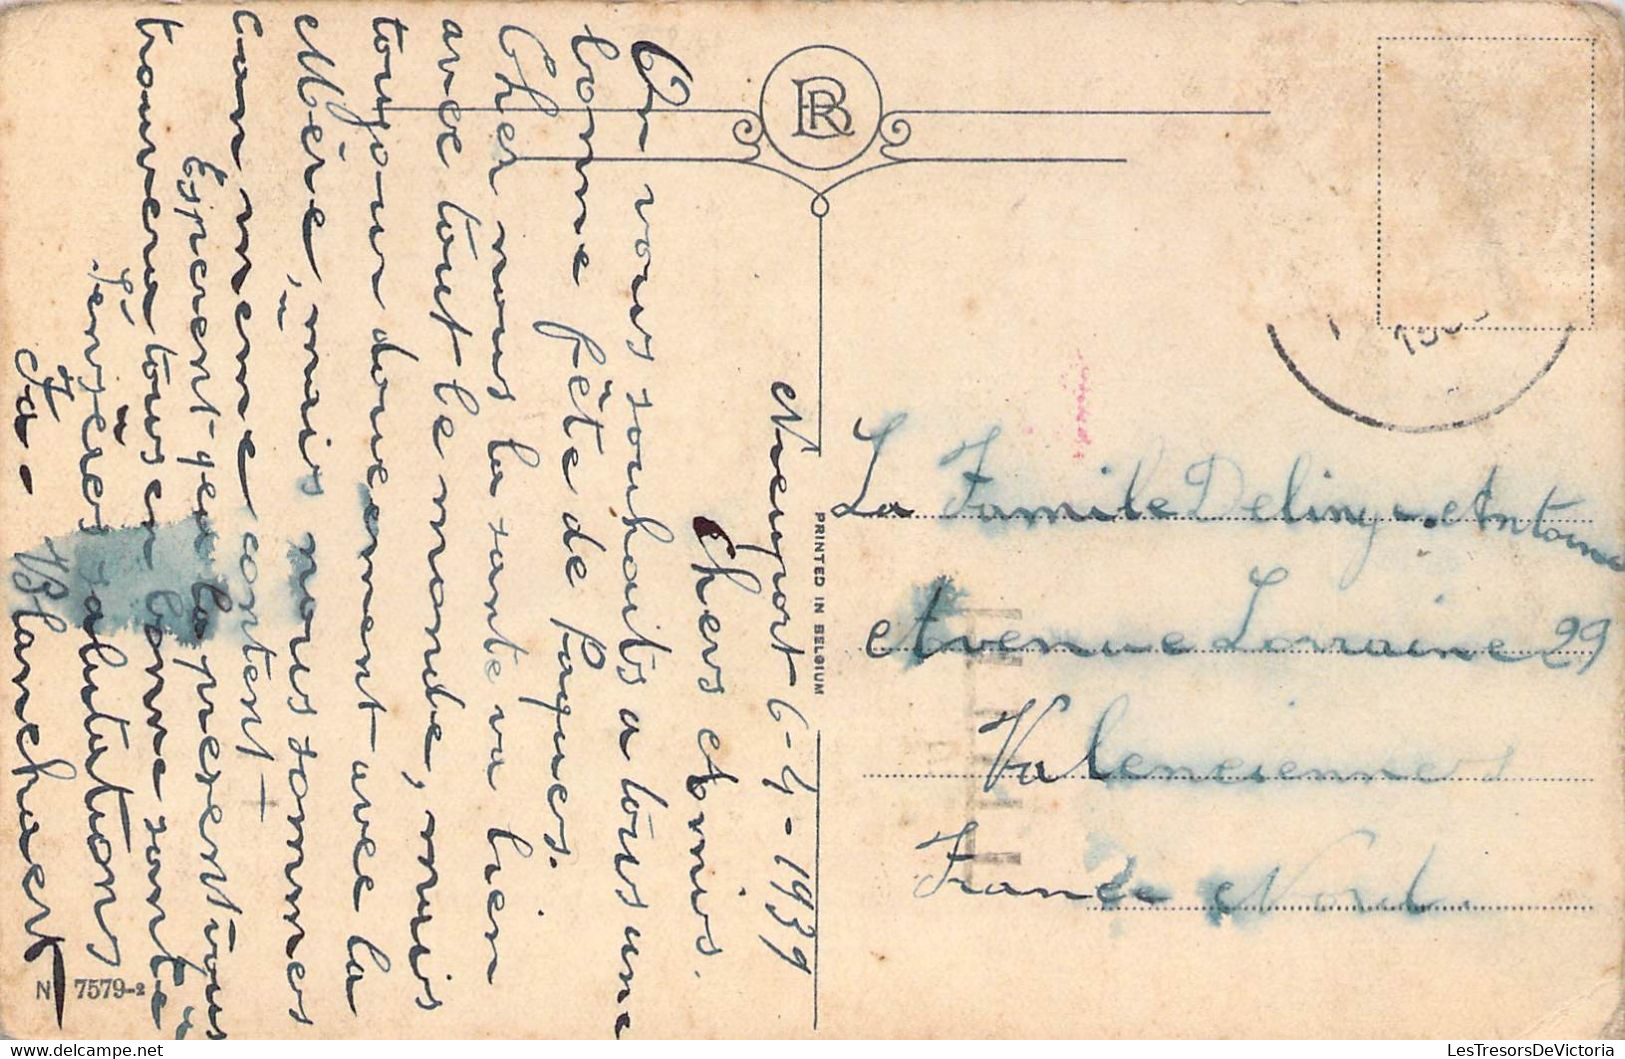 Nieuport 6-4-1939
Chers Amis.
On vous souhaits a tous une
bonne fête de Paques.
Cher nous la sante va bien
avec tout le monde, mais
toujour doucement avec la
Mère, mais nous sommes
can meme content
Esperent que la present vous
trouvera tous en bonne santé
Sensères salutations
Fa. Blanckaert
BR
PRINTED IN BELGIUM
La Famile Delinge. Antoine
Avenue Lorraine 29
Valenciennes
France Nord.
N 7579-2
LesTresorsDeVictoria